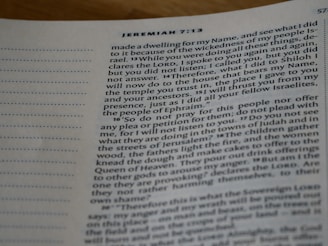 JEREMIAH 7:13
57
made a dwelling for my Name, and see what I did
to it because of the wickedness of my people Is-
rael. 13While you were doing all these things, de-
clares the LORD, I spoke to you again and again,
but you did not listen; I called you, but you did
not answer. 14Therefore, what I did to Shiloh I
will now do to the house that bears my Name,
the temple you trust in, the place I gave to you
and your ancestors. 15I will thrust you from my
presence, just as I did all your fellow Israelites,
the people of Ephraim.”
16“So do not pray for this people nor offer
any plea or petition for them; do not plead with
me, for I will not listen to you. 17Do you not see
what they are doing in the towns of Judah and in
the streets of Jerusalem? 18The children gather
wood, the fathers light the fire, and the women
knead the dough and make cakes to offer to the
Queen of Heaven. They pour out drink offerings
to other gods to arouse my anger. 19But am I the
one they are provoking? declares the LORD. Are
they not rather harming themselves, to their
own shame?
20“‘Therefore this is what the Sovereign LORD
says: my anger and my wrath will be poured out
on this place — on man and beast, on the trees of
the field and on the crops of your land — and it
will burn and not be quenched.